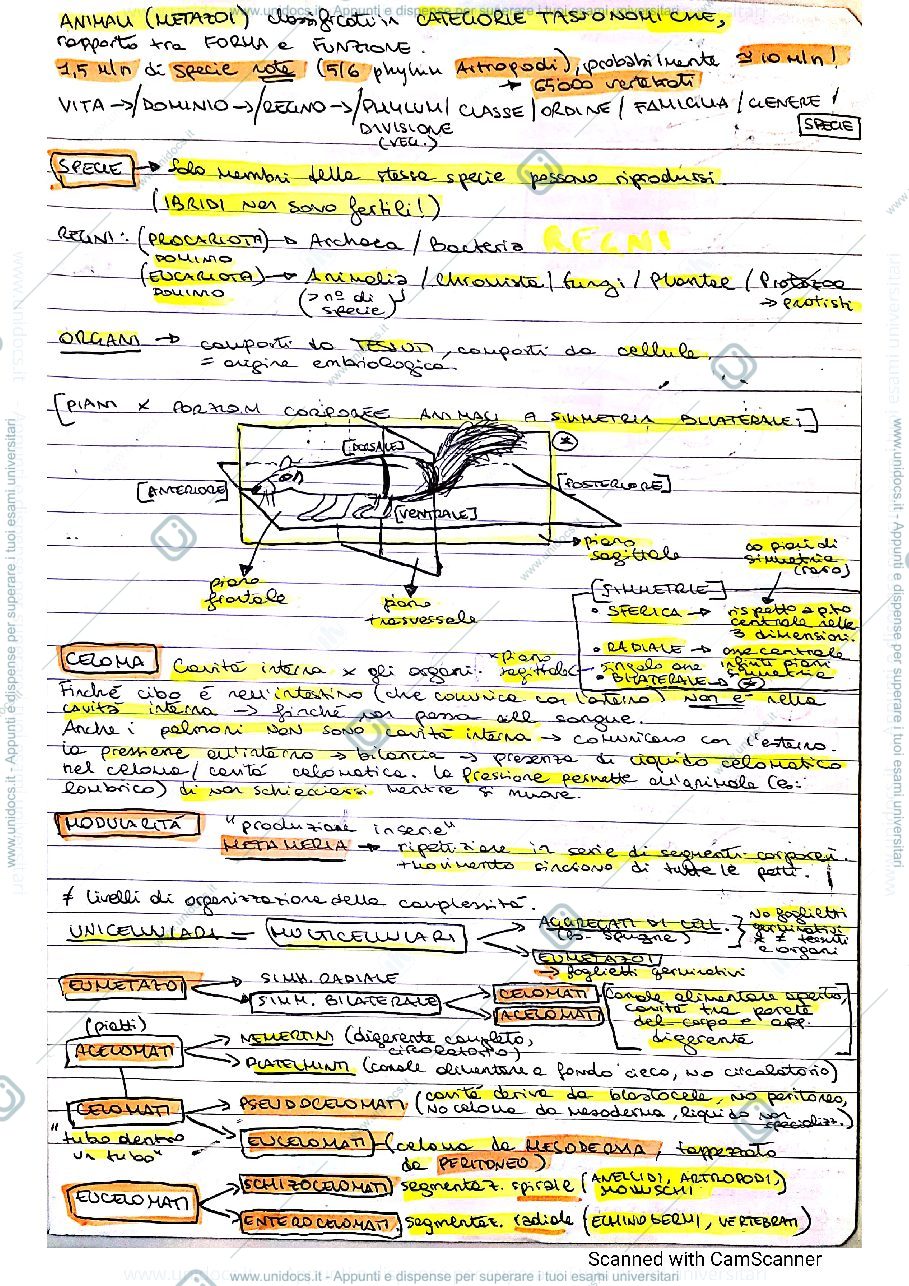 www.unidocs.it - Appunti e dispense per superare i tuoi esami universitari
ANIMALI (METAZOI) classificati in CATEGORIE TASSONOMICHE,
rapporto tra FORMA e FUNZIONE.
1,5 mln di specie note (5/6 phylum Artropodi), probabilmente 10 mln!
→ 65000 vertebrati
VITA → / DOMINIO → / REGNO → / PHYLUM / CLASSE / ORDINE / FAMIGLIA / GENERE /
DIVISIONE
(VEG.)
SPECIE
SPECIE → Solo membri della stessa specie possono riprodursi.
(IBRIDI non sono fertili!)
REGNI: (PROCARIOTA) → Archaea / Bacteria REGNI
DOMINIO
(EUCARIOTA) → Animalia / Chromista / Fungi / Plantae / Protozoa
DOMINIO
(> n° di specie)
→ protisti
ORGANI → composti da TESSUTI, composti da cellule
= origine embriologica.
[PIANI x PORZIONI CORPOREE ANIMALI A SIMMETRIA BILATERALE:]
[DORSALE]
[ANTERIORE]
[POSTERIORE]
[VENTRALE]
piano frontale
piano trasversale
piano sagittale
∞ piani di simmetria (raro)
[SIMMETRIE]
• SFERICA → rispetto a p.to centrale nelle 3 dimensioni.
• RADIALE → asse centrale infiniti piani simmetria
• BILATERALE → (*)
* piano sagittale
CELOMA Cavità interna x gli organi.
Finché cibo è nell'intestino (che comunica con l'esterno) non è nella
cavità interna → finché non passa nel sangue.
Anche i polmoni NON sono cavità interna → comunicano con l'esterno.
la pressione all'interno → bilancia → presenza di liquido celomatico
nel celoma / cavità celomatica. la pressione permette all'animale (es:
lombrico) di non schiacciarsi mentre si muove.
MODULARITÁ "produzione in serie"
METAMERIA → ripetizione in serie di segmenti corporei.
+ movimento sincrono di tutte le parti.
≠ livelli di organizzazione della complessità.
UNICELLULARI = MULTICELLULARI
AGGREGATI DI CELL. (es - spugne)
No foglietti germinativi x ≠ tessuti e organi
EUMETAZOI
→ foglietti germinativi
EUMETAZOI
SIMM. RADIALE
SIMM. BILATERALE
CELOMATI
ACELOMATI
Canale alimentare aperto, cavità tra parete del corpo e app. digerente
(piatti)
ACELOMATI
NEMERTINI (digerente completo, circolatorio)
PLATELMINTI (canale alimentare a fondo cieco, no circolatorio)
CELOMATI
"tubo dentro un tubo"
PSEUDOCELOMATI (cavità deriva da blastocele, no peritoneo,
No celoma da mesoderma, liquido non specializz.)
EUCELOMATI (celoma da MESODERMA, tappezzato
da PERITONEO)
EUCELOMATI
SCHIZOCELOMATI segmentaz. spirale (ANELLIDI, ARTROPODI, MOLLUSCHI)
ENTEROCELOMATI segmentaz. radiale (ECHINODERMI, VERTEBRATI)
Scanned with CamScanner
www.unidocs.it - Appunti e dispense per superare i tuoi esami universitari